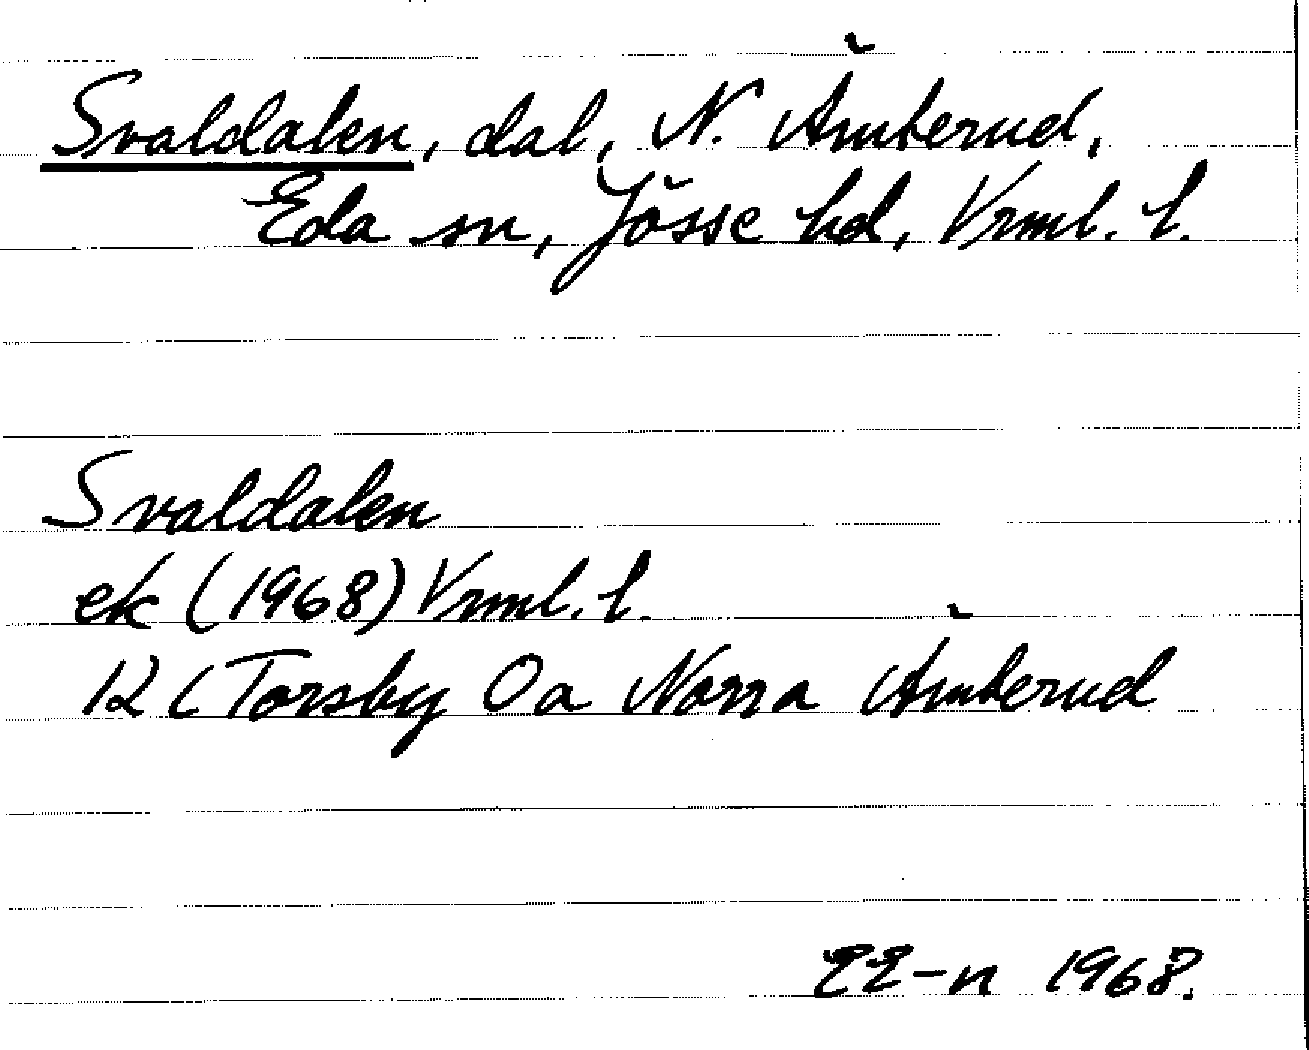 Svaldalen, dal, N. Åmterud,
Eda sn, Jösse hd, Vrml. l.
Svaldalen
ek (1968) Vrml. l.
12 C Torsby 0a Norra Åmterud
EE-n 1968.